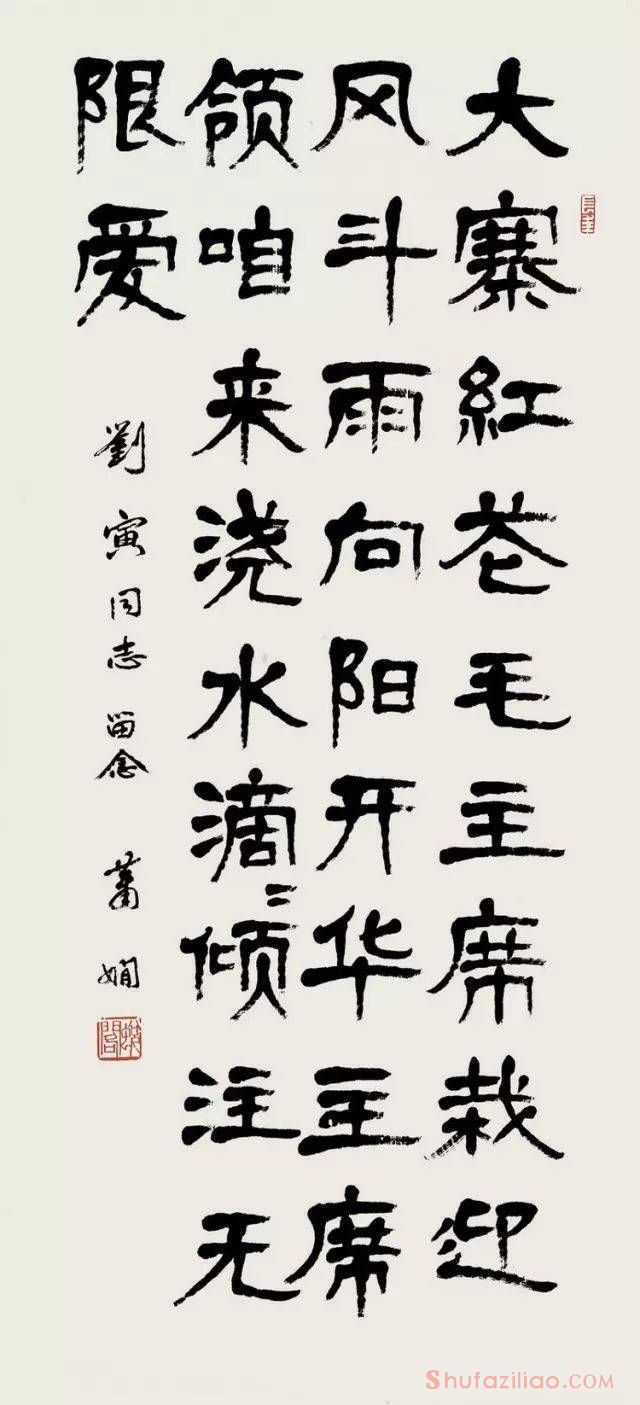 大寨红花毛主席栽迎
风斗雨向阳开华主席
领咱来浇水滴〻倾注无
限爱
劉寅同志留念 萧娴
Shufaziliao.COM